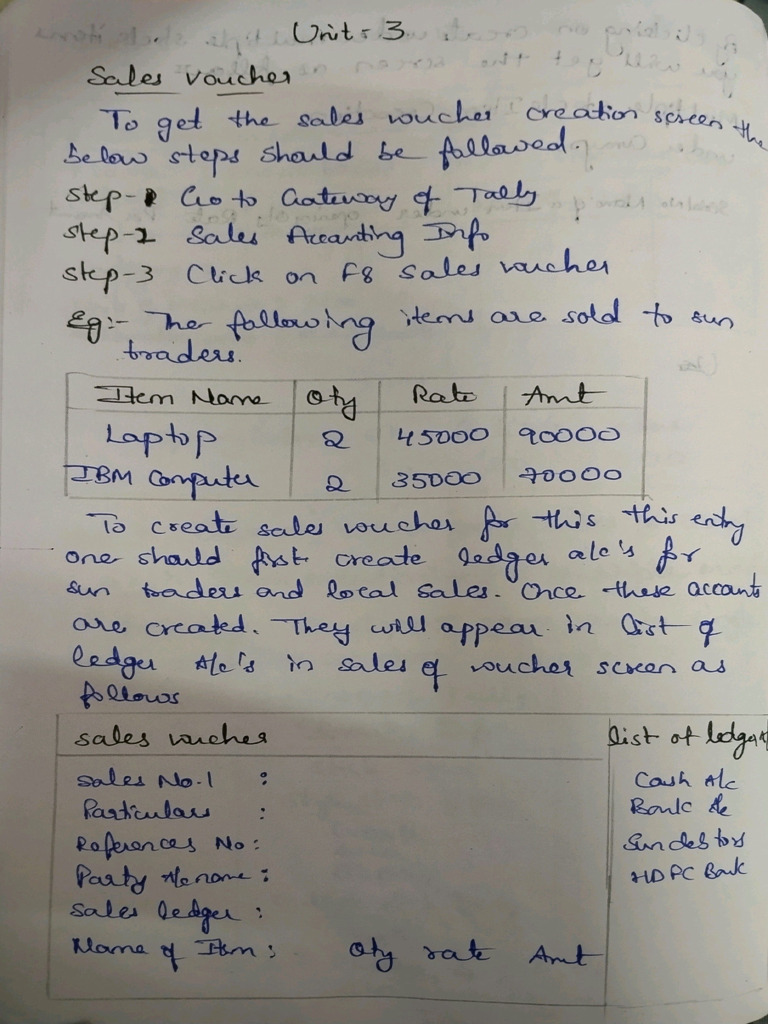 Unit = 3
Sales Voucher
To get the sales voucher creation screen the
below steps should be followed.
Step-1 Go to Gateway of Tally
Step-2 Sales Accounting Info
Step-3 Click on F8 sales voucher
Eg:- The following items are sold to sun
traders.
Item Name Qty Rate Amt
Laptop 2 45000 90000
IBM Computer 2 35000 70000
To create sales voucher for this this entry
one should first create ledger a/c's for
sun traders and local sales. Once these accounts
are created. They will appear in list of
ledger A/c's in sales of voucher screen as
follows
sales voucher list of ledger
Sales No.1 : Cash A/c
Particulars : Bank A/c
References No: Sundebtors
Party A/c name: HDFC Bank
Sales ledger :
Name of Item: Qty rate Amt